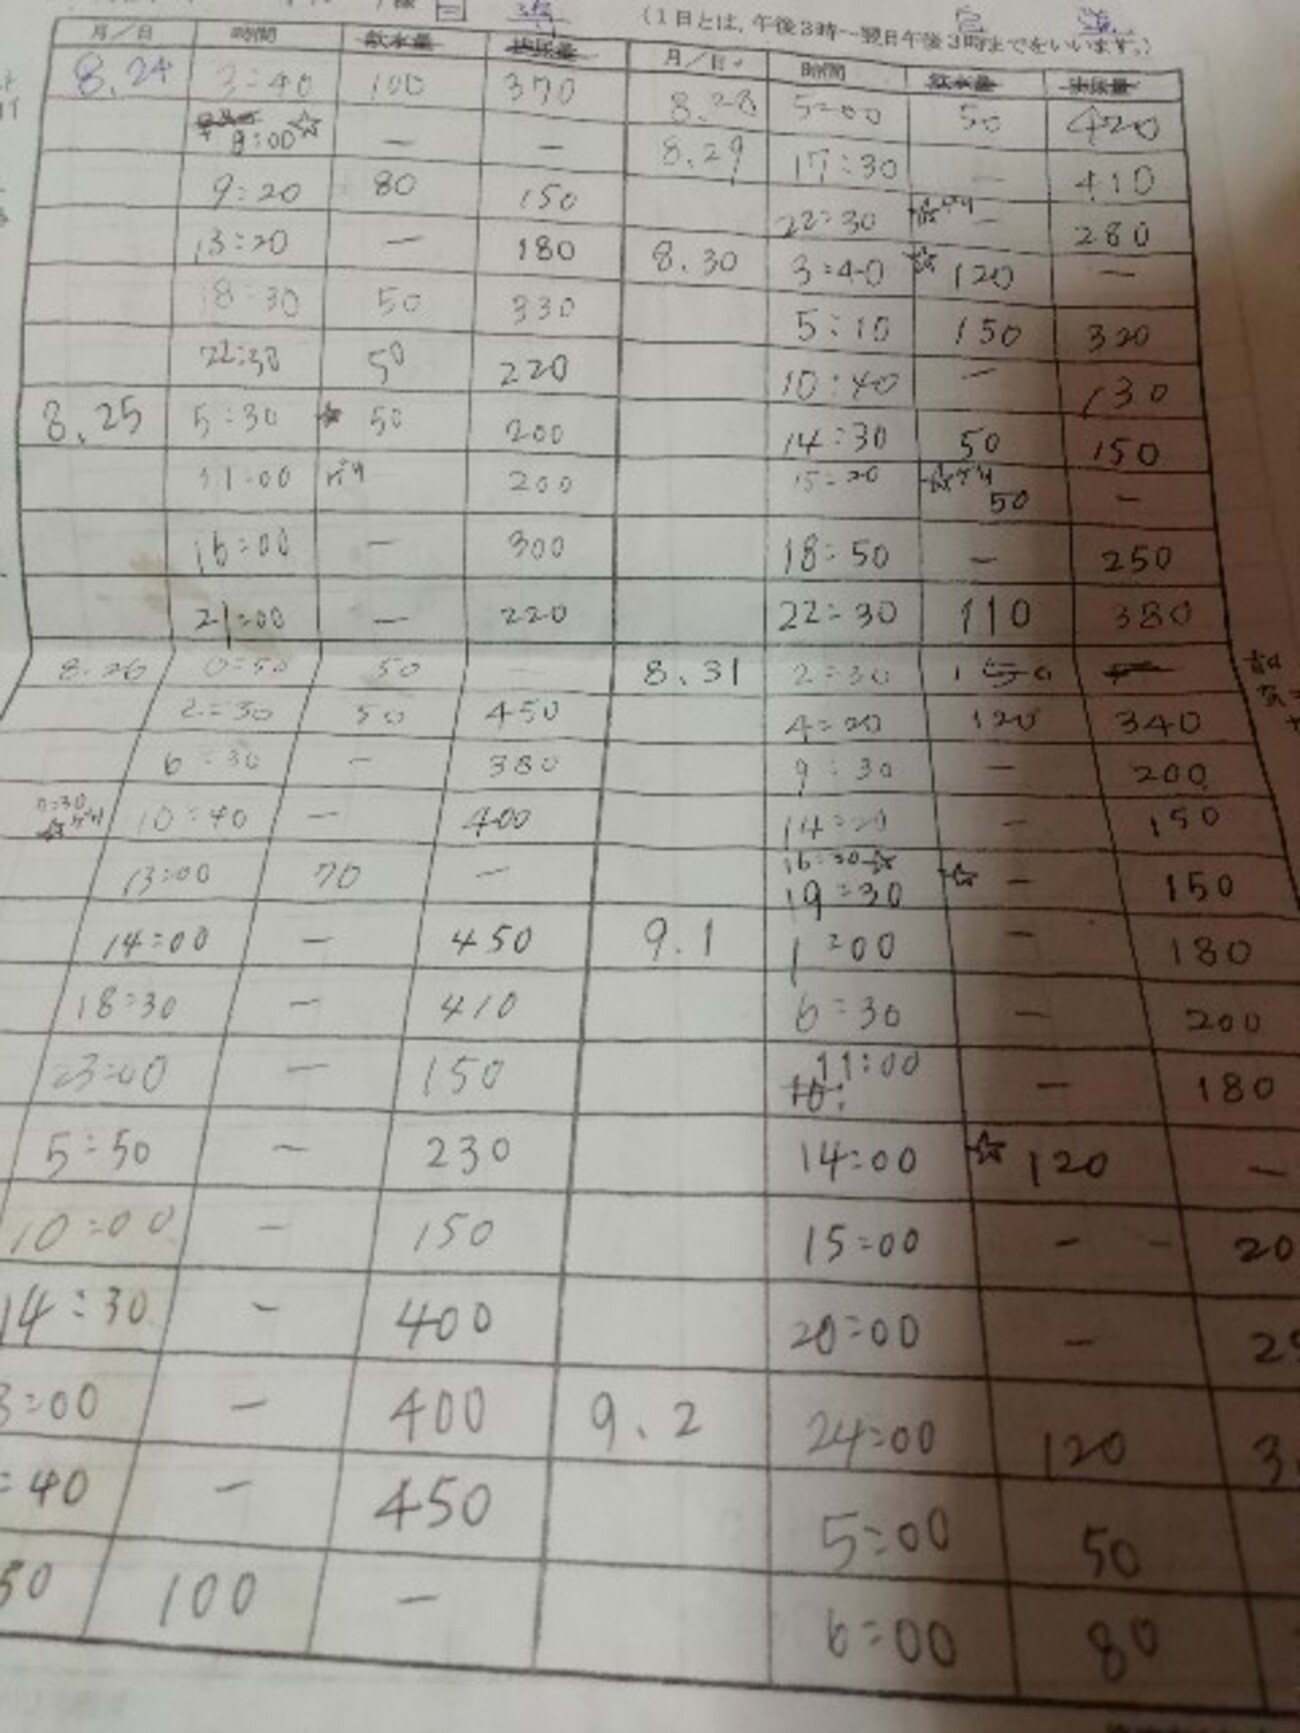 様
(1日とは、午後3時〜翌日午後3時までをいいます。)
月/日 時間 飲水量 排尿量
8.24 3:40 100 370
8:00 ☆ — —
9:20 80 150
13:20 — 180
18:30 50 330
22:30 50 220
8.25 5:30 ★ 50 200
11:00 ゲリ — 200
16:00 — 300
21:00 — 220
8.26 0:50 50
2:30 50 450
6:30 — 380
☆ゲリ 10:40 — 400
13:00 70 —
14:00 — 450
18:30 — 410
23:00 — 150
5:50 — 230
10:00 — 150
14:30 — 400
:00 — 400
:40 — 450
50 100 —
月/日 時間 飲水量 排尿量
8.28 5:00 50 420
8.29 17:30 — 410
22:30 ☆ゲリ — 280
8.30 3:40 ☆ 120 —
5:10 150 320
10:40 — 130
14:30 50 150
15:20 ☆ゲリ 50 —
18:50 — 250
22:30 110 380
8.31 2:30 150
4:20 120 340
9:30 — 200
14:20 — 150
16:30 ☆
19:30 ☆ — 150
9.1 1:00 — 180
6:30 — 200
11:00 — 180
14:00 ☆ 120 —
15:00 — 20
20:00 — 2
9.2 24:00 120 3
5:00 50
6:00 80